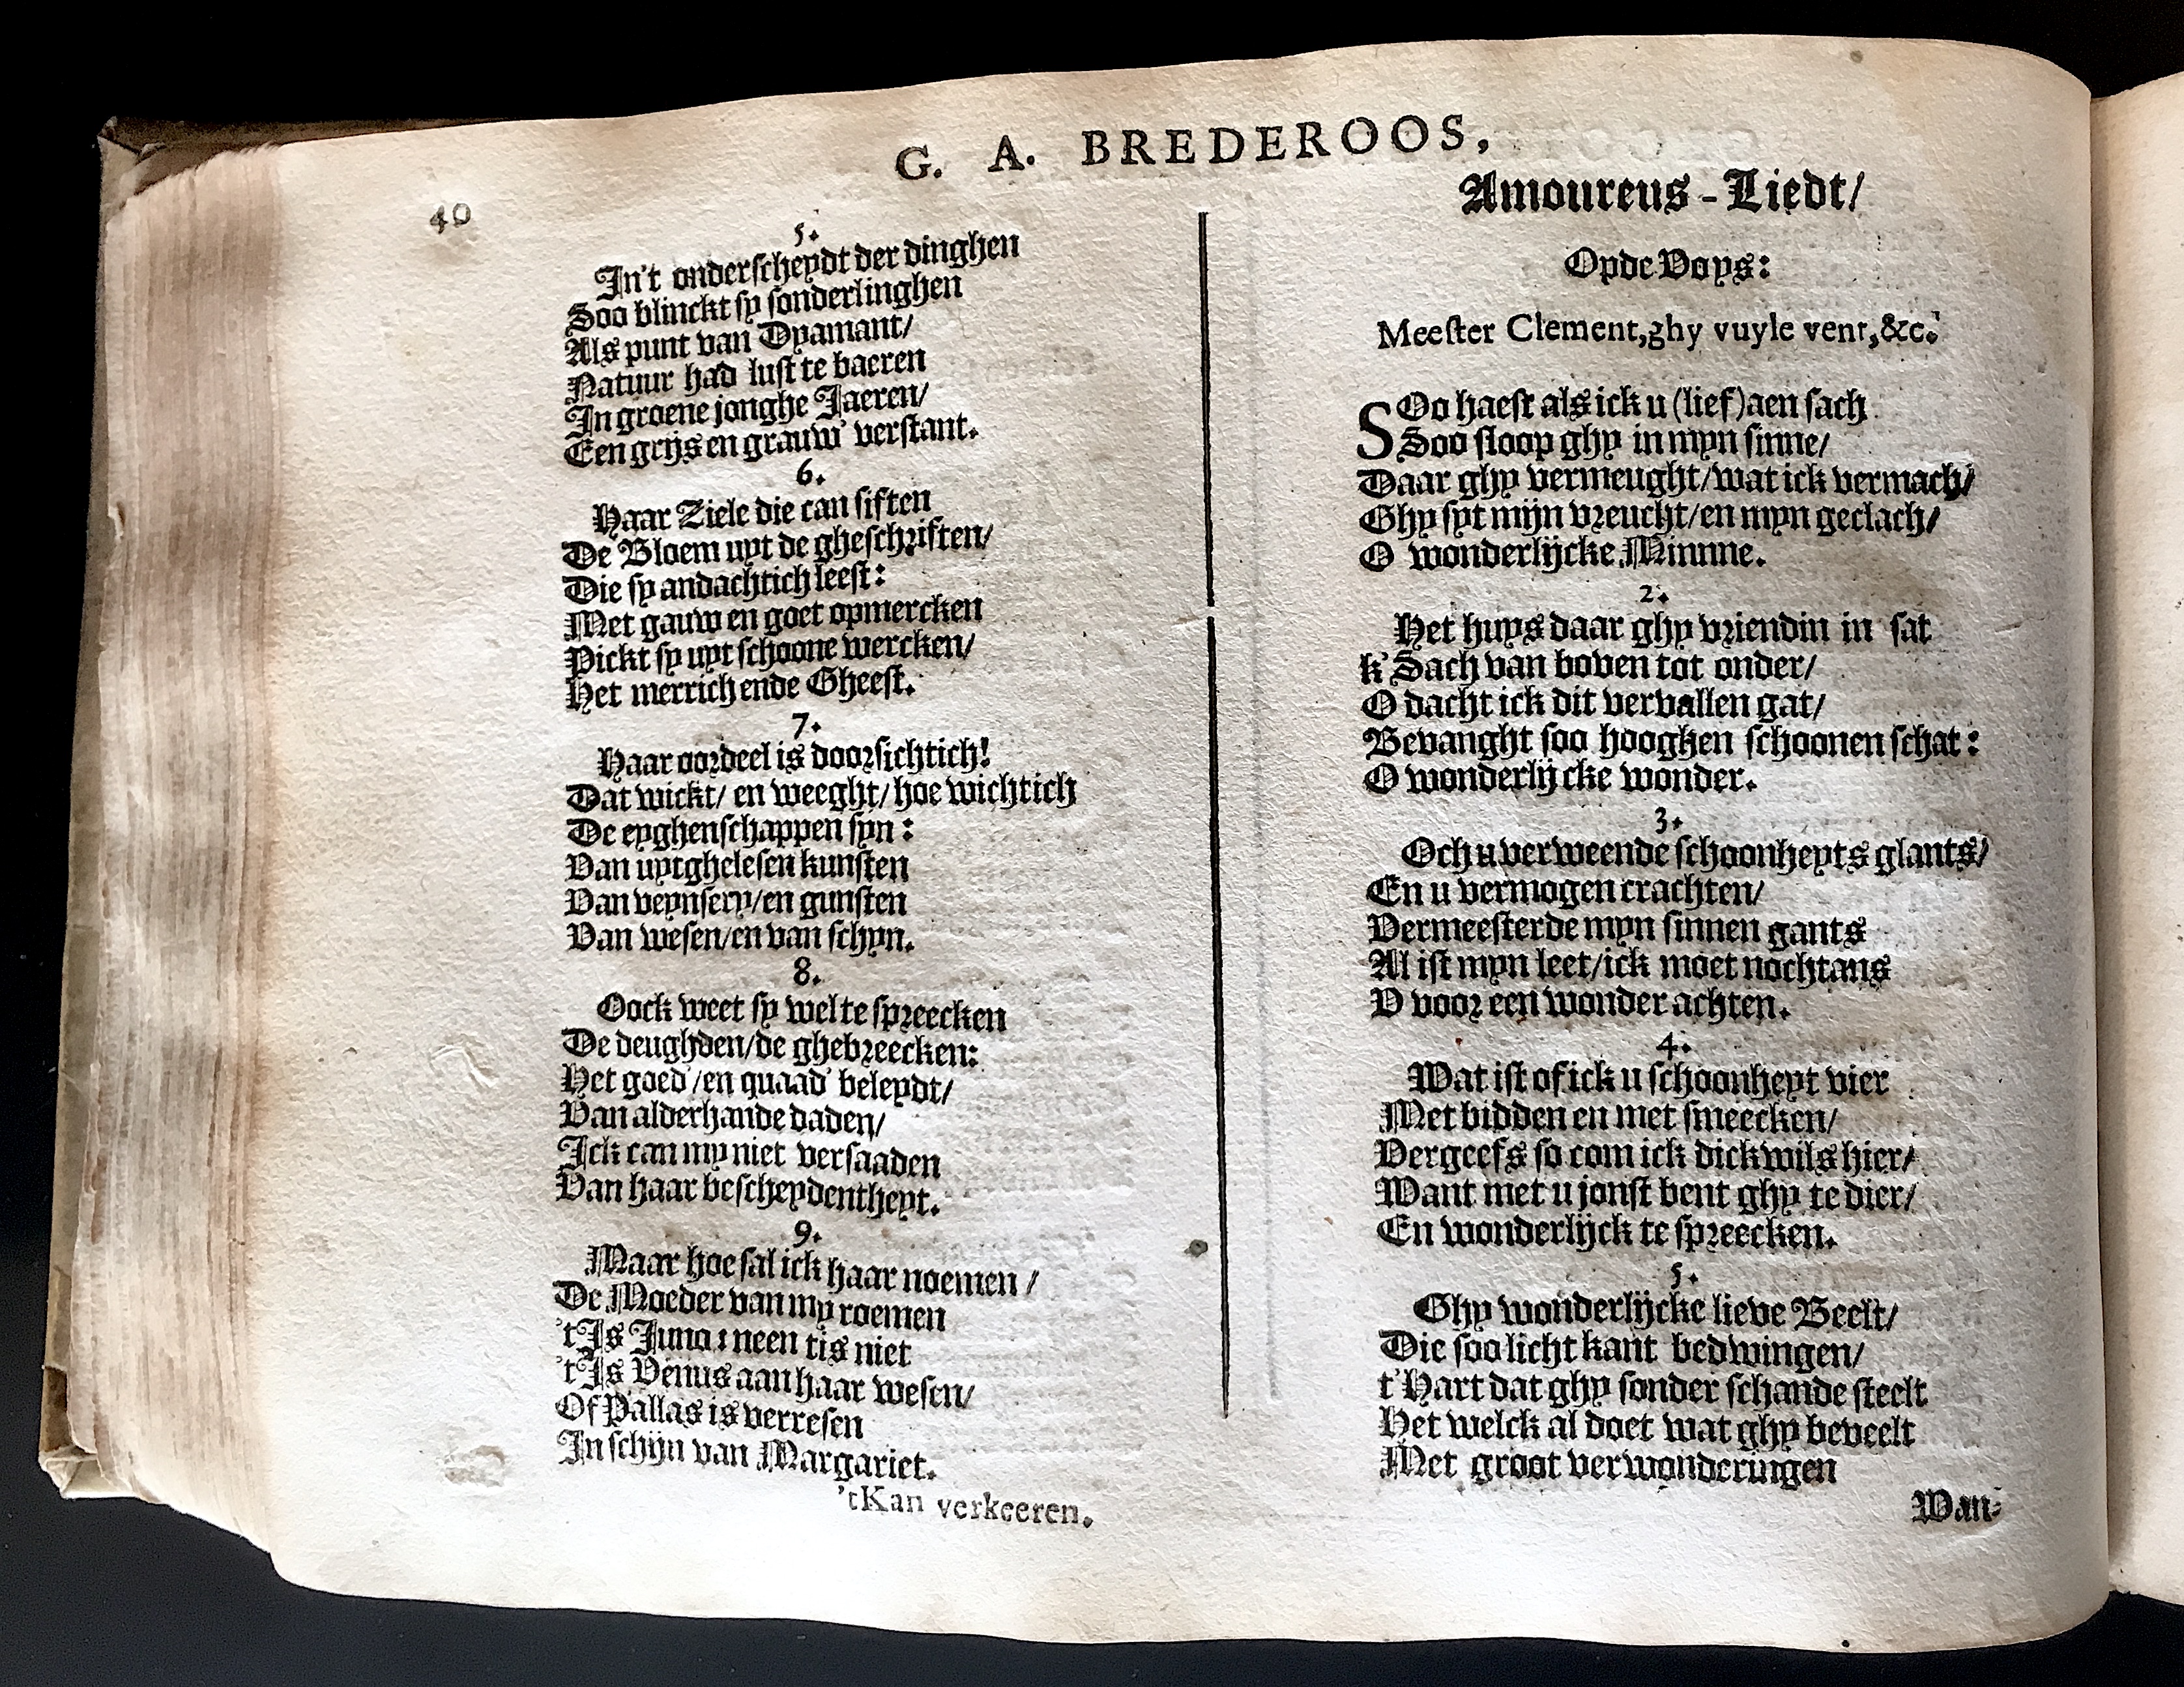 G. A. BREDEROOS,
40
5.
In't onderscheydt der dinghen
Soo blinckt sy sonderlinghen
Als punt van Dyamant/
Natuur had lust te baeren
In groene jonghe Jaeren/
Een grijs en grauw' verstant.
6.
Haar Ziele die can siften
De Bloem uyt de gheschriften/
Die sy andachtich leest:
Met gauw en goet opmercken
Pickt sy uyt schoone wercken/
Het merrich ende Gheest.
7.
Haar oordeel is doorsichtich!
Dat wickt/ en weeght/ hoe wichtich
De eyghenschappen syn:
Van uytghelesen kunsten
Van veynsery/en gunsten
Van wesen/en van schyn.
8.
Oock weet sy wel te spreecken
De deughden/de ghebreecken:
Het goed'/en quaad' beleydt/
Van alderhande daden/
Ick can my niet versaaden
Van haar bescheydentheyt.
9.
Maar hoe sal ick haar noemen /
De Moeder van my roemen
't Is Juno: neen tis niet
't Is Venus aan haar wesen/
Of Pallas is verresen
In schijn van Margariet.
't Kan verkeeren.
Amoureus-Liedt/
Op de Voys:
Meester Clement, ghy vuyle vent, &c.
SOo haest als ick u (lief) aen sach
Soo sloop ghy in myn sinne/
Daar ghy vermeught/wat ick vermach/
Ghy syt mijn vreucht/en myn geclach/
O wonderlijcke Minnne.
2.
Het huys daar ghy vriendin in sat
k'Sach van boven tot onder/
O dacht ick dit vervallen gat/
Bevanght soo hooghen schoonen schat:
O wonderlijcke wonder.
3.
Och u verweende schoonheyts glants/
En u vermogen crachten/
Vermeesterde myn sinnen gants
Al ist myn leet/ick moet nochtans
V voor een wonder achten.
4.
Wat ist of ick u schoonheyt vier
Met bidden en met smeecken/
Vergeefs so com ick dickwils hier/
Want met u jonst bent ghy te dier/
En wonderlijck te spreecken.
5.
Ghy wonderlijcke lieve Beelt/
Die soo licht kant bedwingen/
t'Hart dat ghy sonder schande steelt
Het welck al doet wat ghy beveelt
Met groot verwonderingen
Wan-